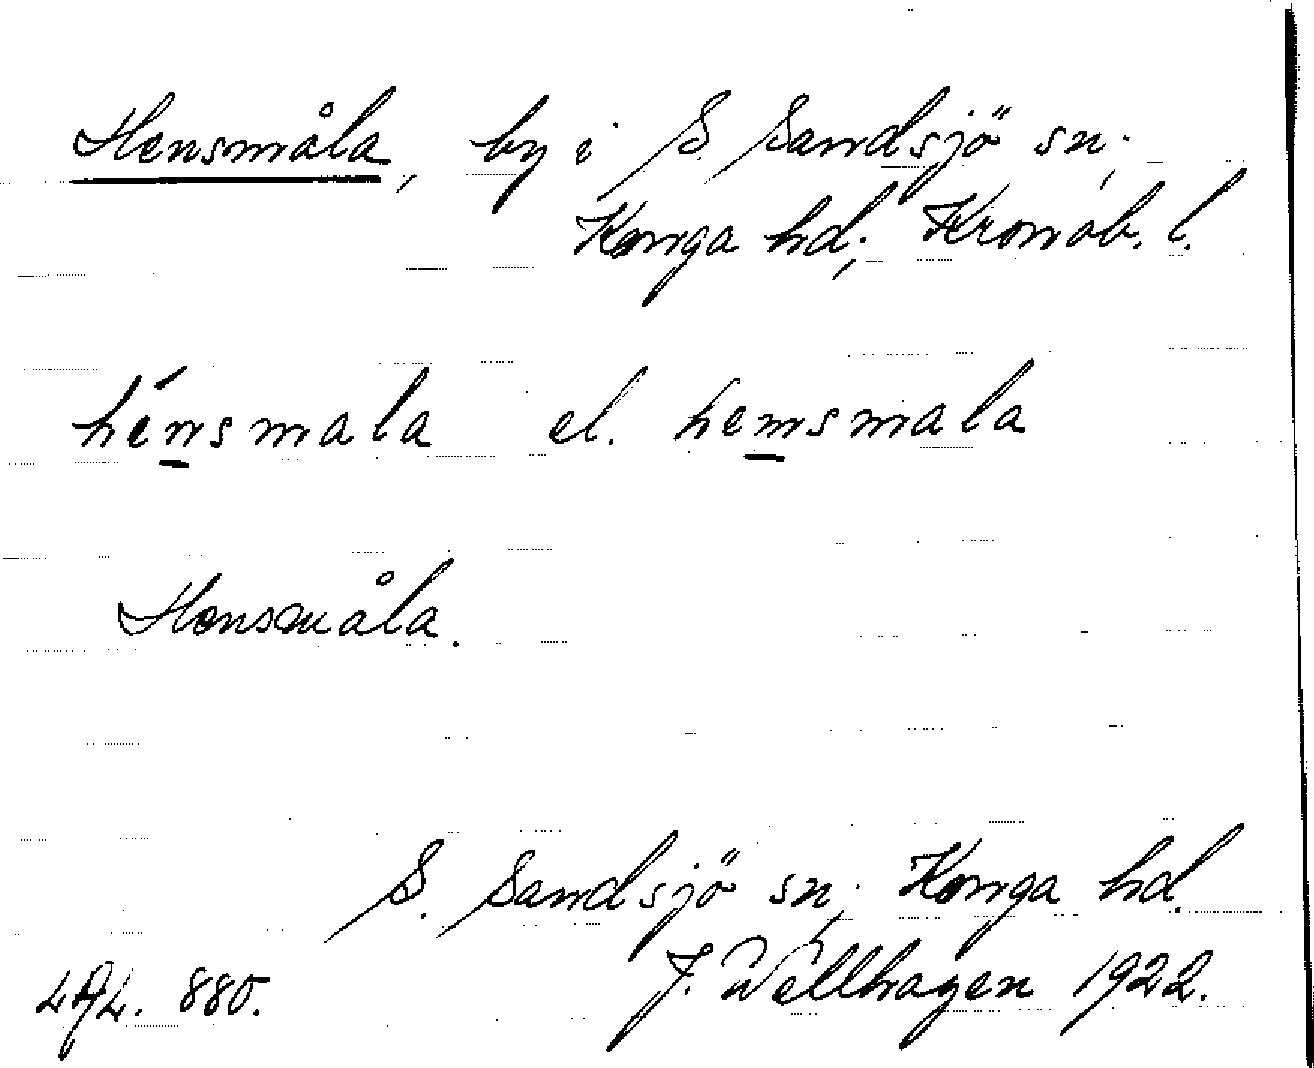 Hensmåla, by i S. Sandsjö sn.,
Konga hd., Kronob. l.
hénsmala el. hemsmala
Hensmåla.
S. Sandsjö sn., Konga hd.
880. J. Wellhagen 1922.